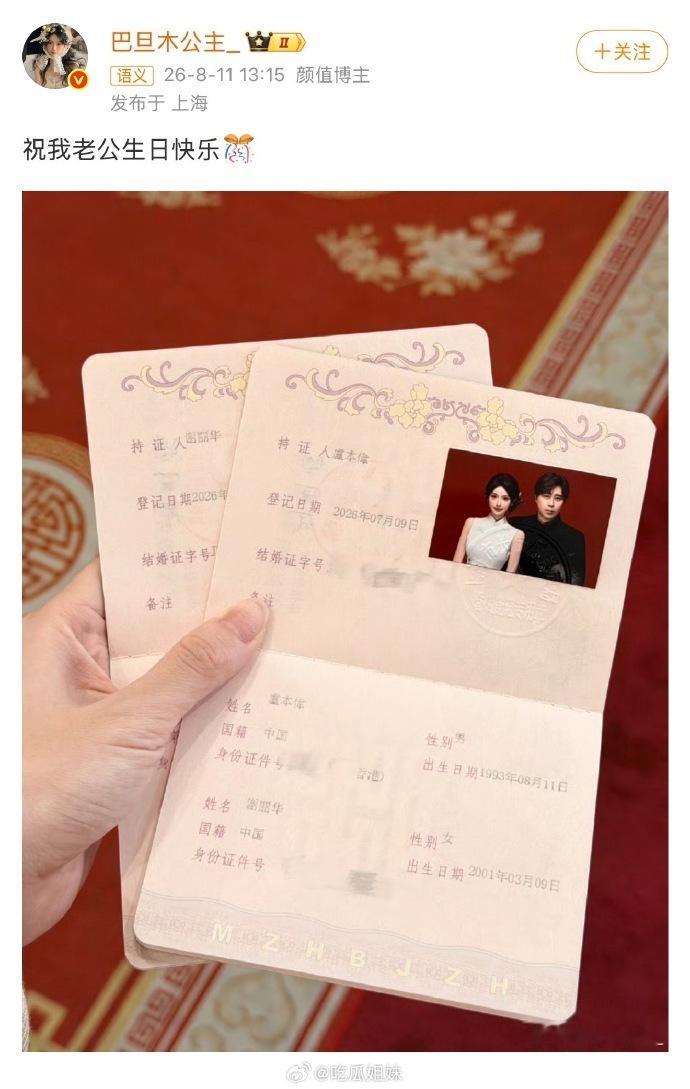 巴旦木公主_
II
+关注
语义 26-8-11 13:15 颜值博主
发布于 上海
祝我老公生日快乐
持 证 人谢丽华
登记日期2026年
结婚证字号J
备注
持 证 人 童本伟
登记日期 2026年07月09日
结婚证字号
备注
姓名 童本伟
国籍 中国
性别 男
身份证件号
香港)
出生日期 1993年08月11日
姓名 谢丽华
国籍 中国
性别 女
身份证件号
出生日期 2001年03月09日
MZHBJZH
@吃瓜姐妹